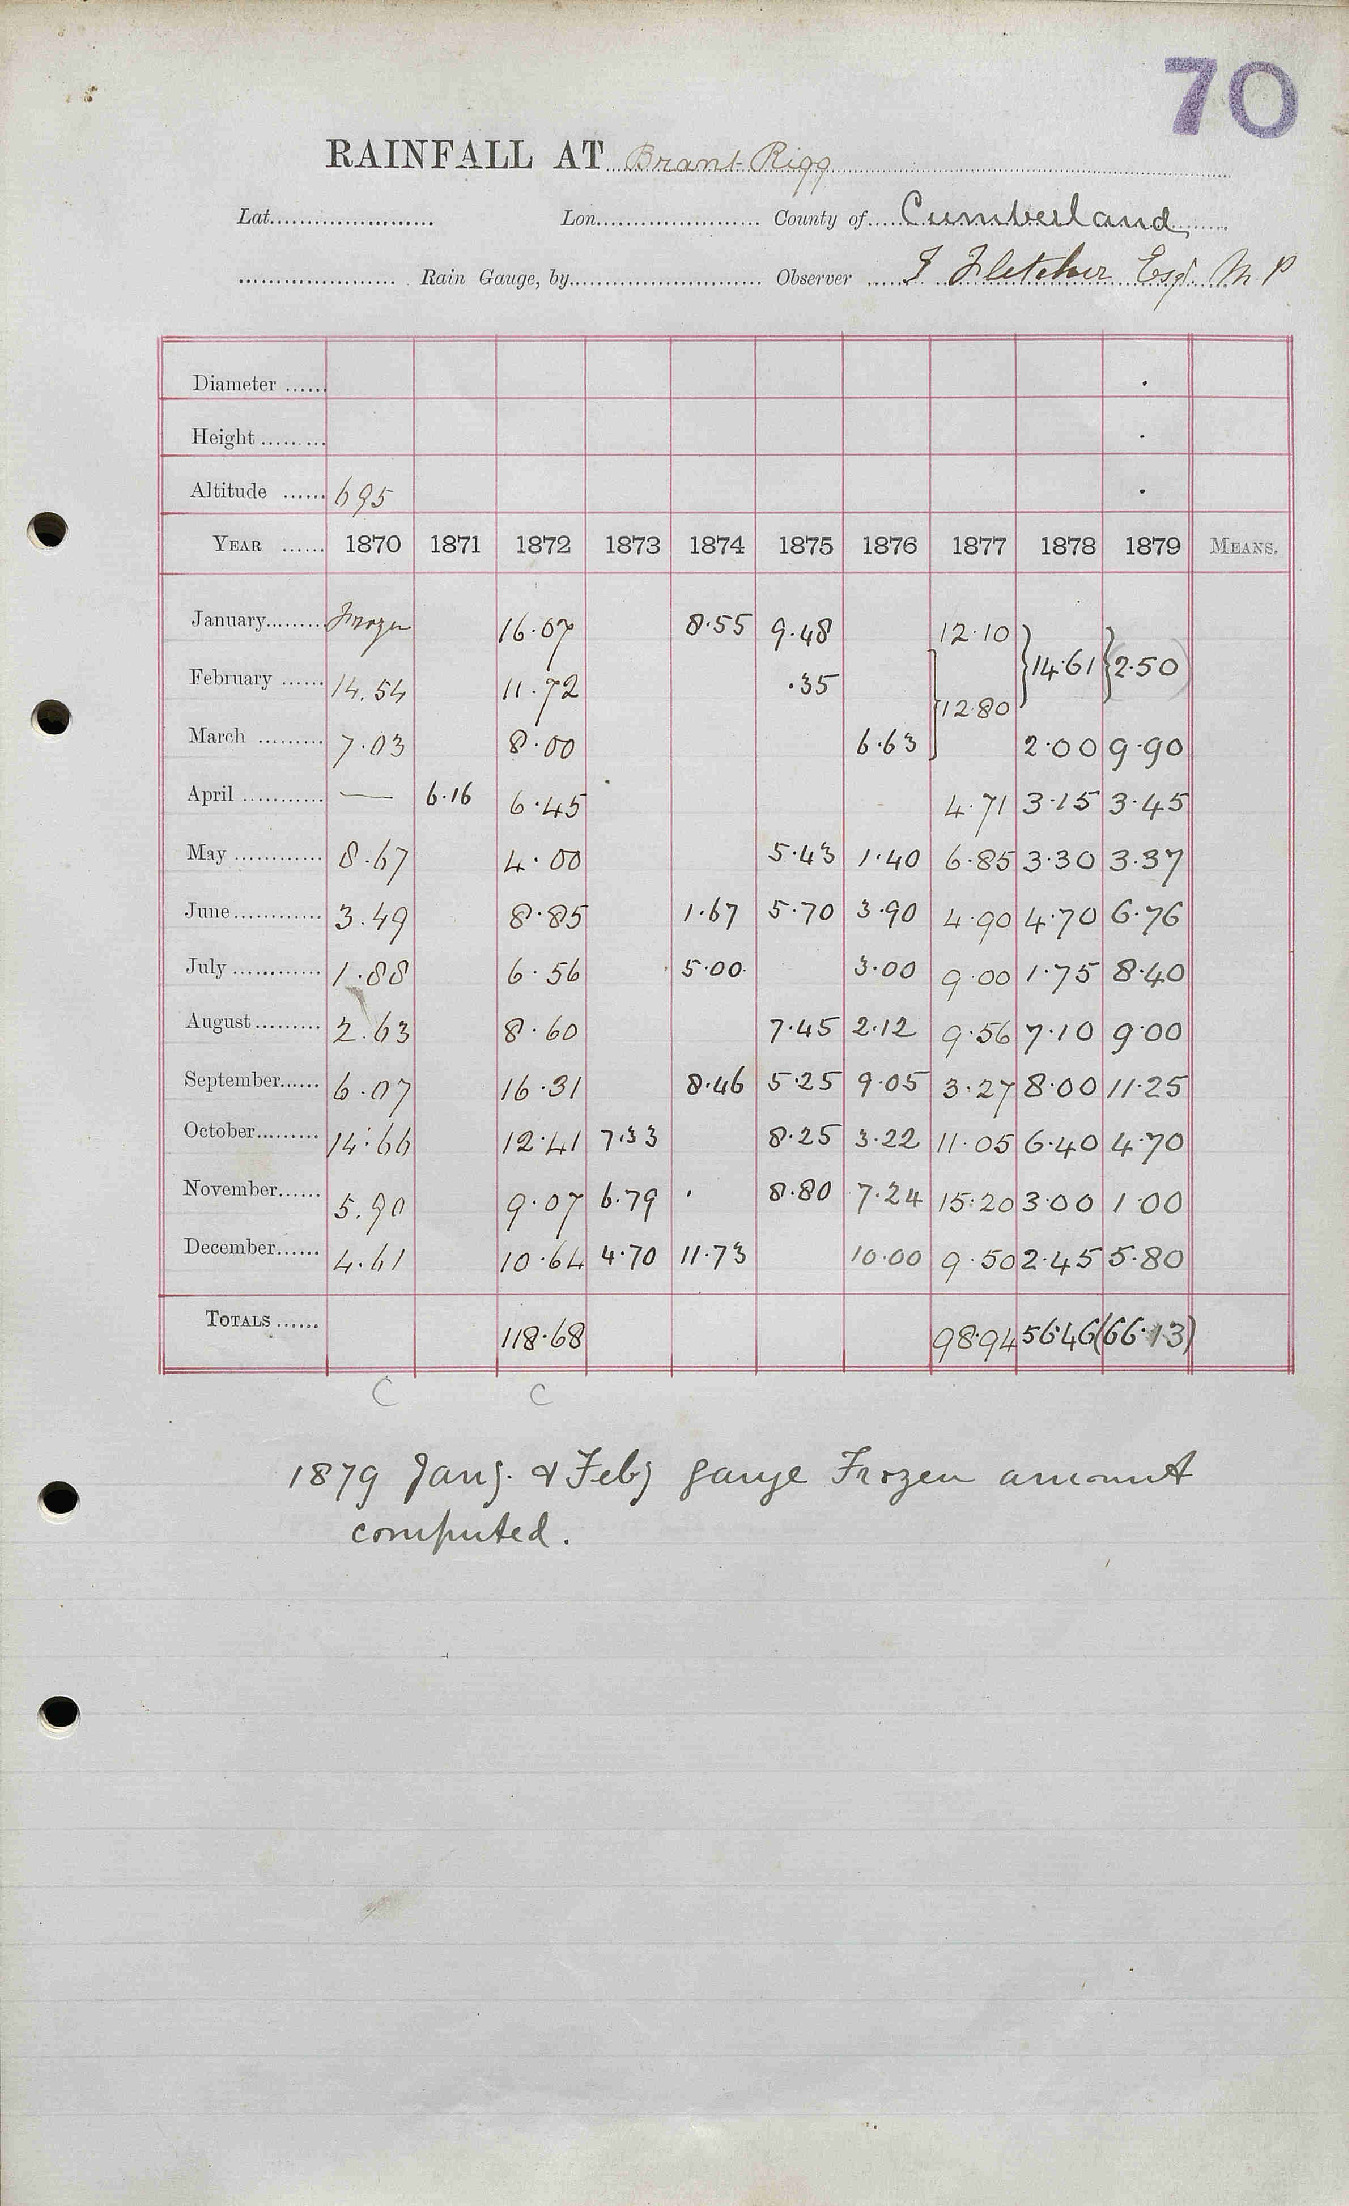 70
RAINFALL AT Brant Rigg
Lat. Lon. County of Cumberland
Rain Gauge, by Observer I Fletcher Esqr. M.P
Diameter
Height
Altitude 695
YEAR 1870 1871 1872 1873 1874 1875 1876 1877 1878 1879 MEANS.
January Frozen 16.07 8.55 9.48 12.10 } 14.61 } (2.50)
February 14.54 11.72 .35 } 12.80
March 7.03 8.00 6.63 2.00 9.90
April — 6.16 6.45 4.71 3.15 3.45
May 8.67 4.00 5.43 1.40 6.85 3.30 3.37
June 3.49 8.85 1.67 5.70 3.90 4.90 4.70 6.76
July 1.88 6.56 5.00 3.00 9.00 1.75 8.40
August 2.63 8.60 7.45 2.12 9.56 7.10 9.00
September 6.07 16.31 8.46 5.25 9.05 3.27 8.00 11.25
October 14.66 12.41 7.33 8.25 3.22 11.05 6.40 4.70
November 5.90 9.07 6.79 8.80 7.24 15.20 3.00 1.00
December 4.61 10.64 4.70 11.73 10.00 9.50 2.45 5.80
TOTALS 118.68 98.94 56.46 (66.13)
C C
1879 Jany. & Feby gauge Frozen amount
computed.